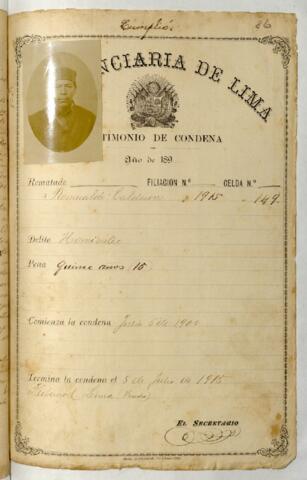 Cumplió.
86
NCIARIA DE LIMA
TIMONIO DE CONDENA
Año de 189
Rematado FILIACION N.º CELDA N.º
Romualdo Calderon 1915 149
Delito Homicidio
Pena Quince años 15
Comienza la condena Julio 5 de 1900
Termina la condena el 5 de Julio de 1915
Lima
EL SECRETARIO